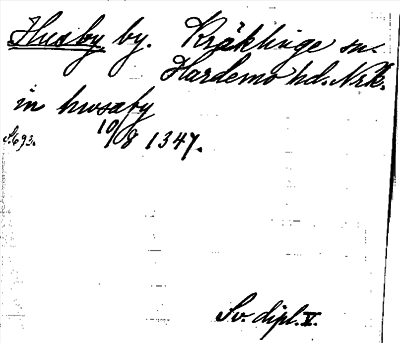 Husby by. Kräklinge sn.
Hardemo hd. Nrk.
in hwsaby
S. 693. 10/8 1347.
Sv. dipl. V.